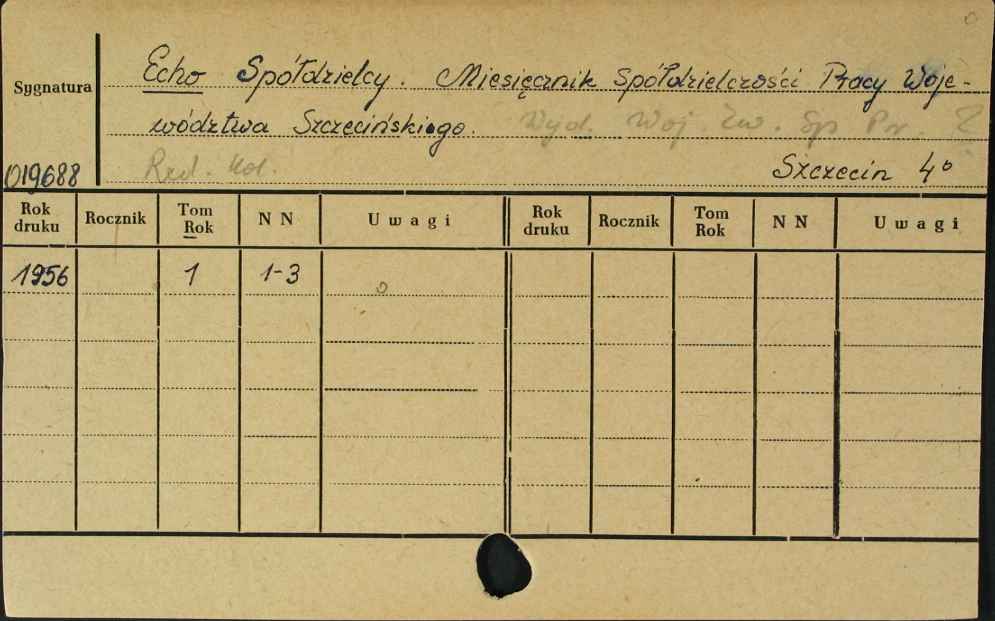 Sygnatura
Echo Spółdzielcy. Miesięcznik Spółdzielczości Pracy Woje-
wództwa Szczecińskiego. Wyd. Woj. Zw. Sp. Pr.
019688 Red. Kol. Szczecin 4°
Rok druku Rocznik Tom Rok N N Uwagi Rok druku Rocznik Tom Rok N N Uwagi
1956 1 1-3